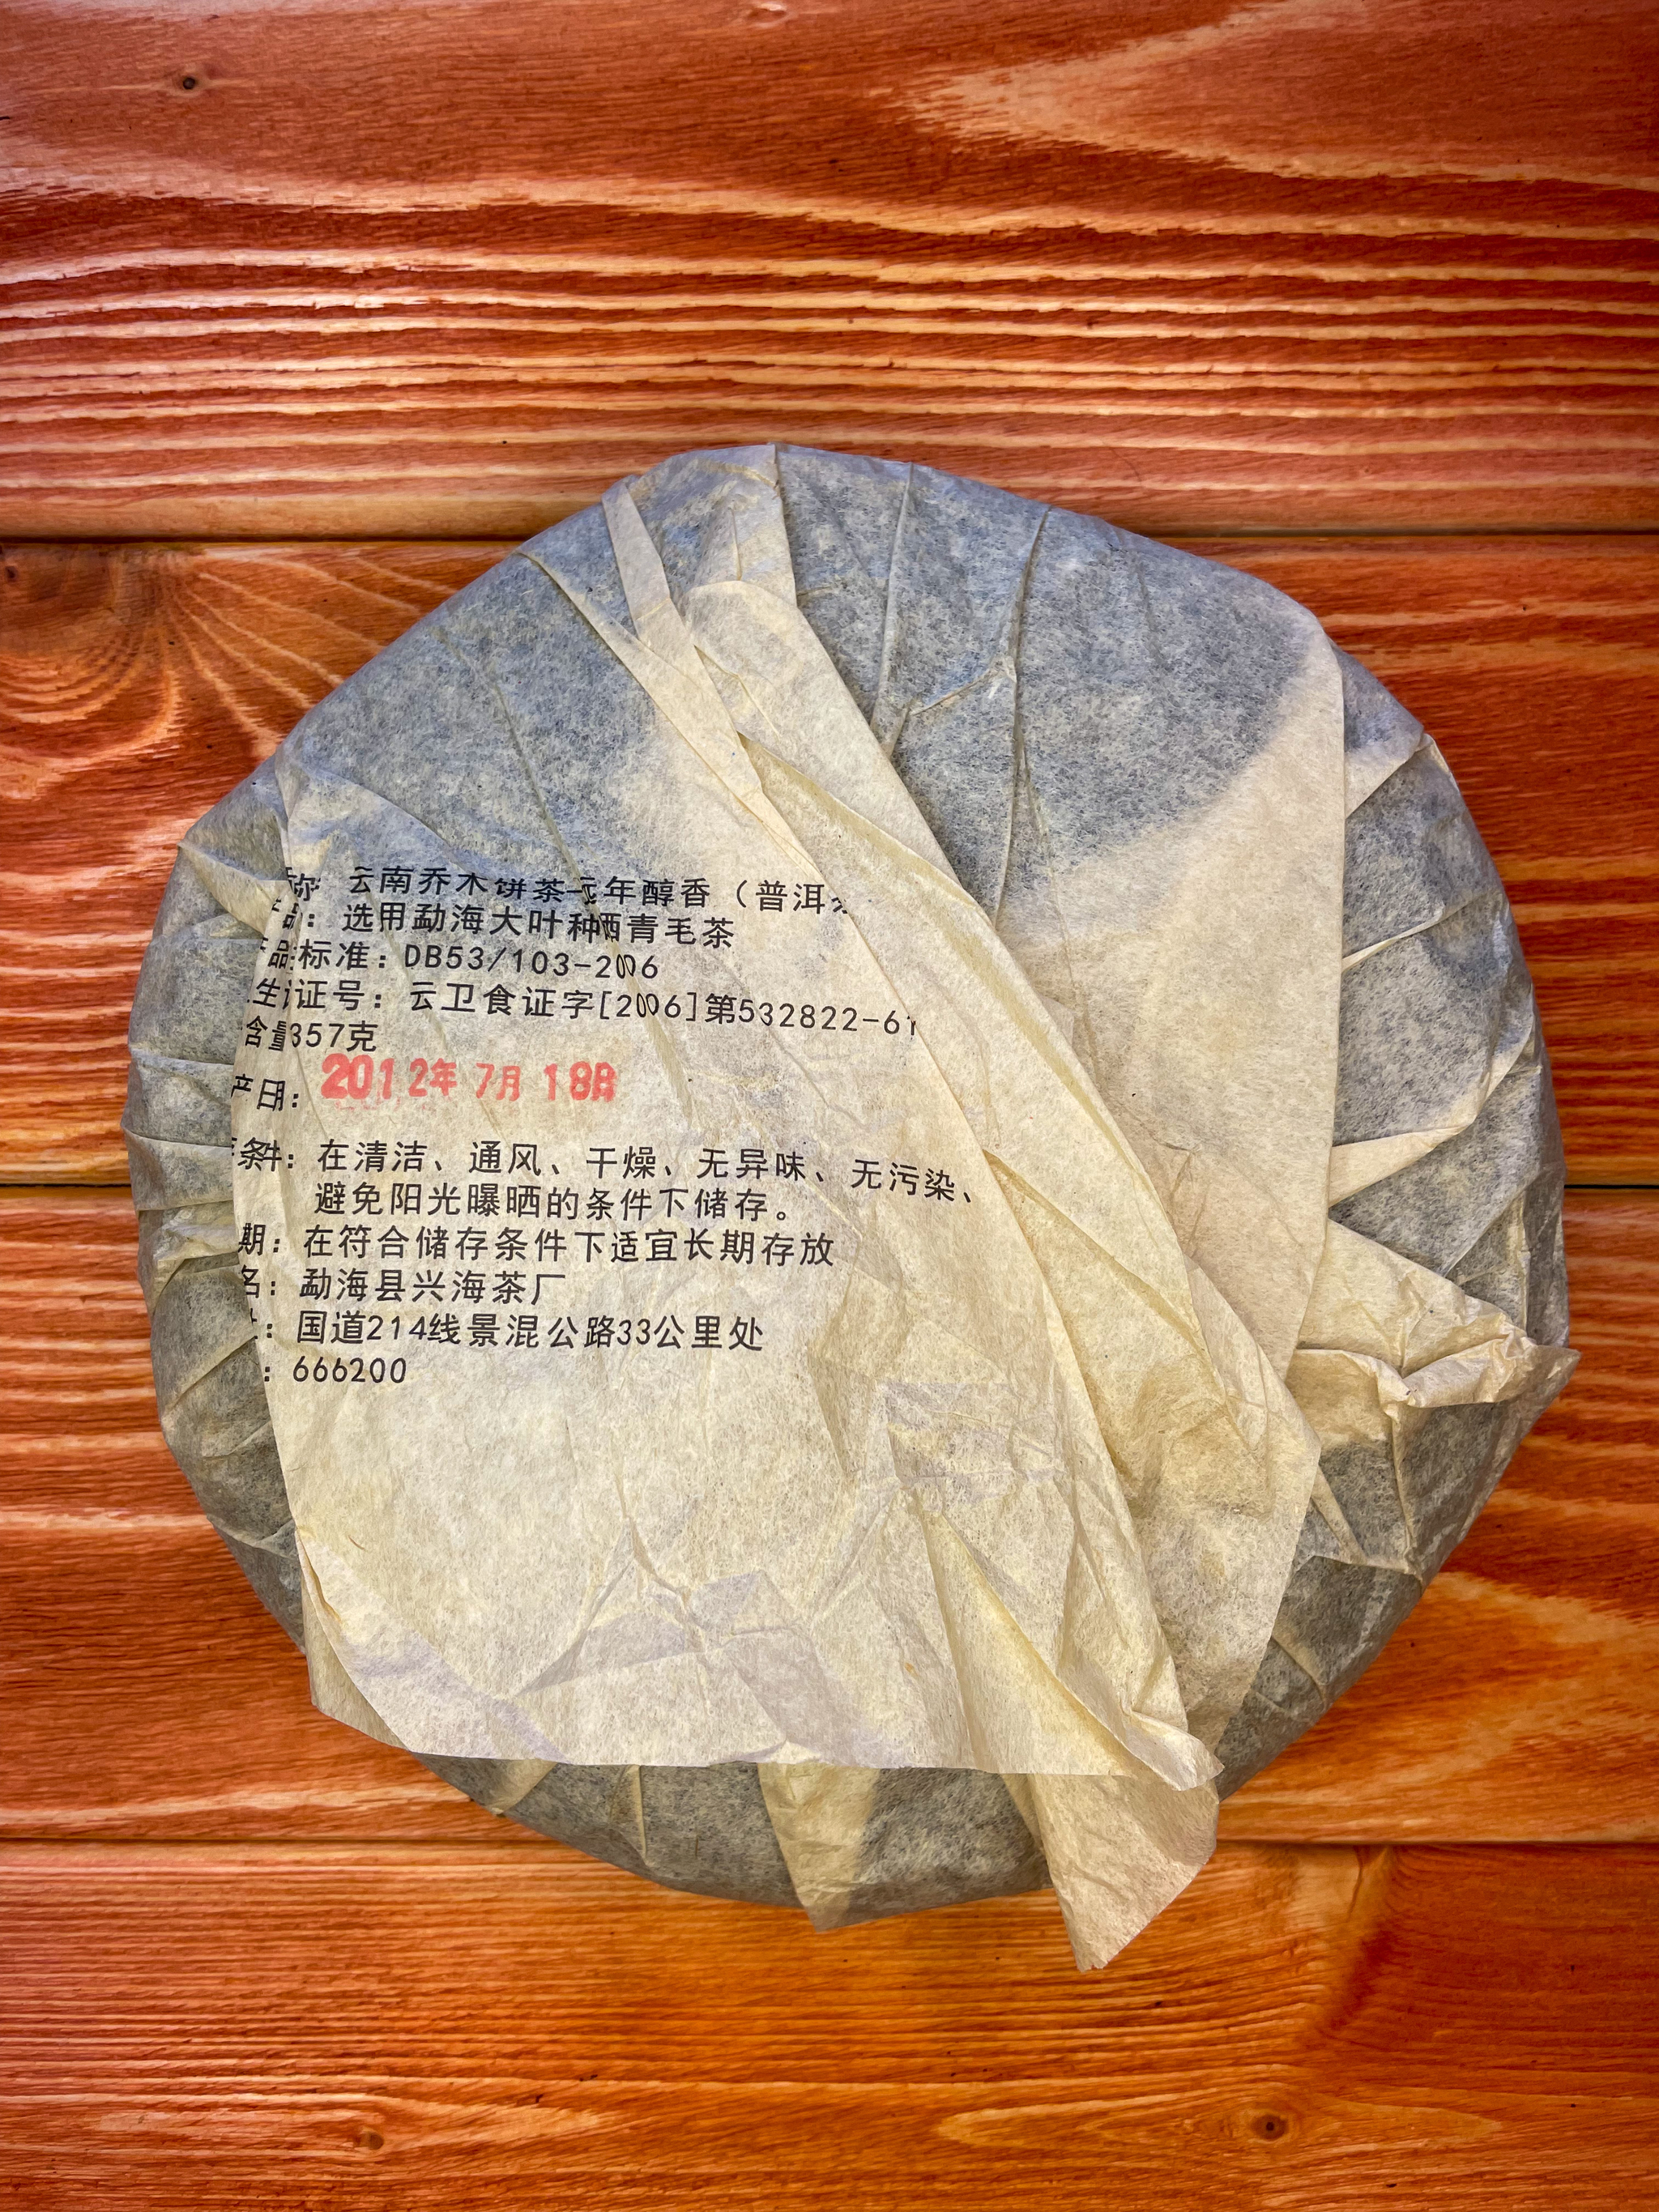 称: 云南乔木饼茶 年醇香（普洱
品: 选用勐海大叶种晒青毛茶
产品标准: DB53/103-2006
生证号: 云卫食证字[2006]第532822-61
含量357克
产日: 2012年7月18日
条件: 在清洁、通风、干燥、无异味、无污染、
避免阳光曝晒的条件下储存。
期: 在符合储存条件下适宜长期存放
名: 勐海县兴海茶厂
: 国道214线景混公路33公里处
: 666200